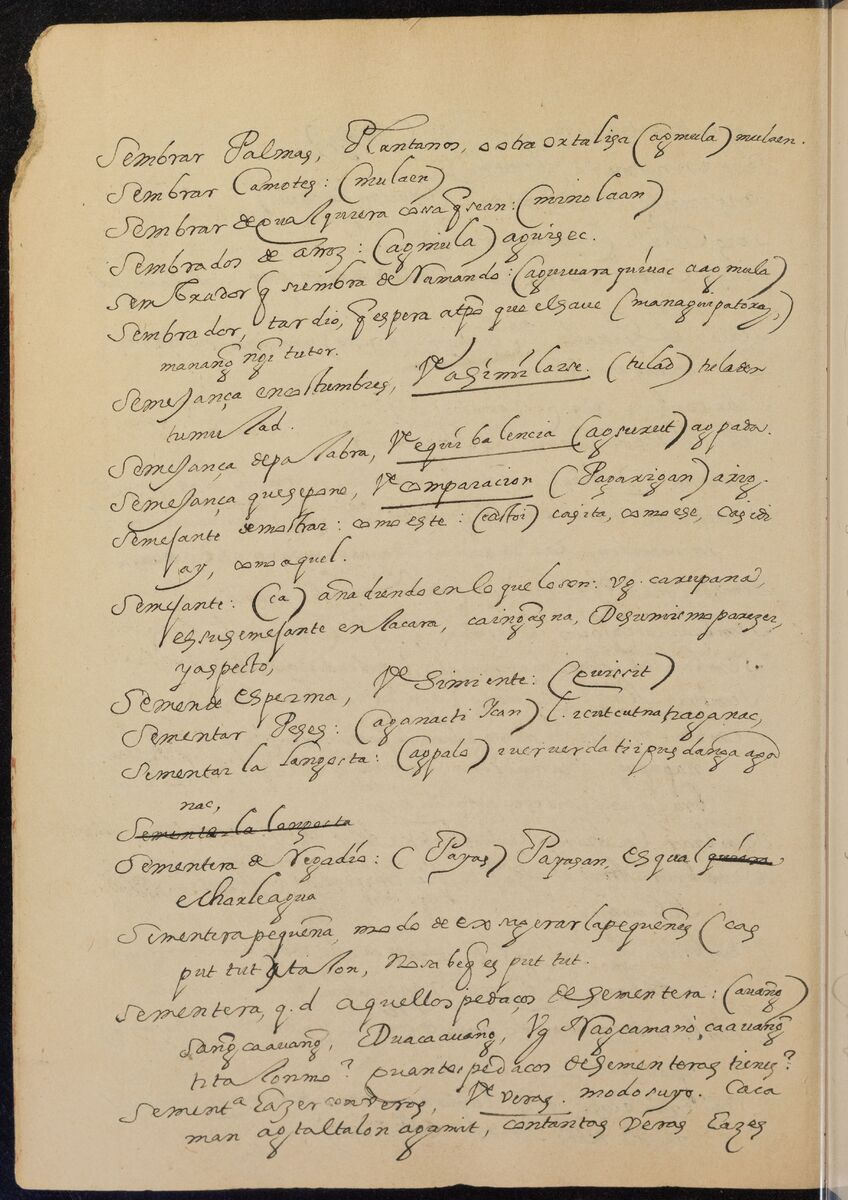 Sembrar Palmas, Plantanos, o otra ortalisa (agmula) mulaen.
Sembrar Camotes: (mulaen)
Sembrar de qualquiera cosa q̃ sean: (minolaan)
Sembrados de arroz: (agmula) aguisec.
Sembrador q̃ siembra de Namando: (aguivara quívac aagmula)
Sembrador, tardio, q̃ espera atpõ que el save (managuipatoraz,)
manang̃ ng̃i tutor.
Semejança en costumbres, Vᵉ asímílarse. (tulad) tuladen
tumulad.
Semejança de palabra, Vᵉ equíbalencia (agsurut) agpada.
Semejança que se pone, Vᵉ comparacion (Pagarigan) arig.
Semejante demostrar: como este: (castoi) casita, como ese, casidi
ay, como aquel.
Semejante: (ca) añadiendo en lo que lo son: vg. carupana,
es su semejante en la cara, caing̃asna, De su mismo parezer,
y aspecto,
Semen de esperma, Vᵉ Simiente: (quissit)
Sementar Peses: (aganacti Ican) l. icutcutna ti aganac,
Sementar la langosta: (agpalo) iveruer da ti ipus dang̃a agã
nac,
Sementar la langosta
Sementera de Regadío: (Payas) Payasan, es qual quiera
echarle agua
Sementera pequeña, modo de exsagerar la pequeñes (cas
put tut) y talon, no sabe q̃ es put tut.
Sementera, q.d aquellos pedaços de sementera: (avang̃)
Sang̃caavang̃, Dvacaavang̃, Vg Nagcamano caavang̃
ti talonmo? quantos pedaços de sementeras tienes?
Sementᵃ Eazer con veras, Vᵉ veras. modo suyo. Caca
man agtaltalon agamit, con tantas veras Eazes